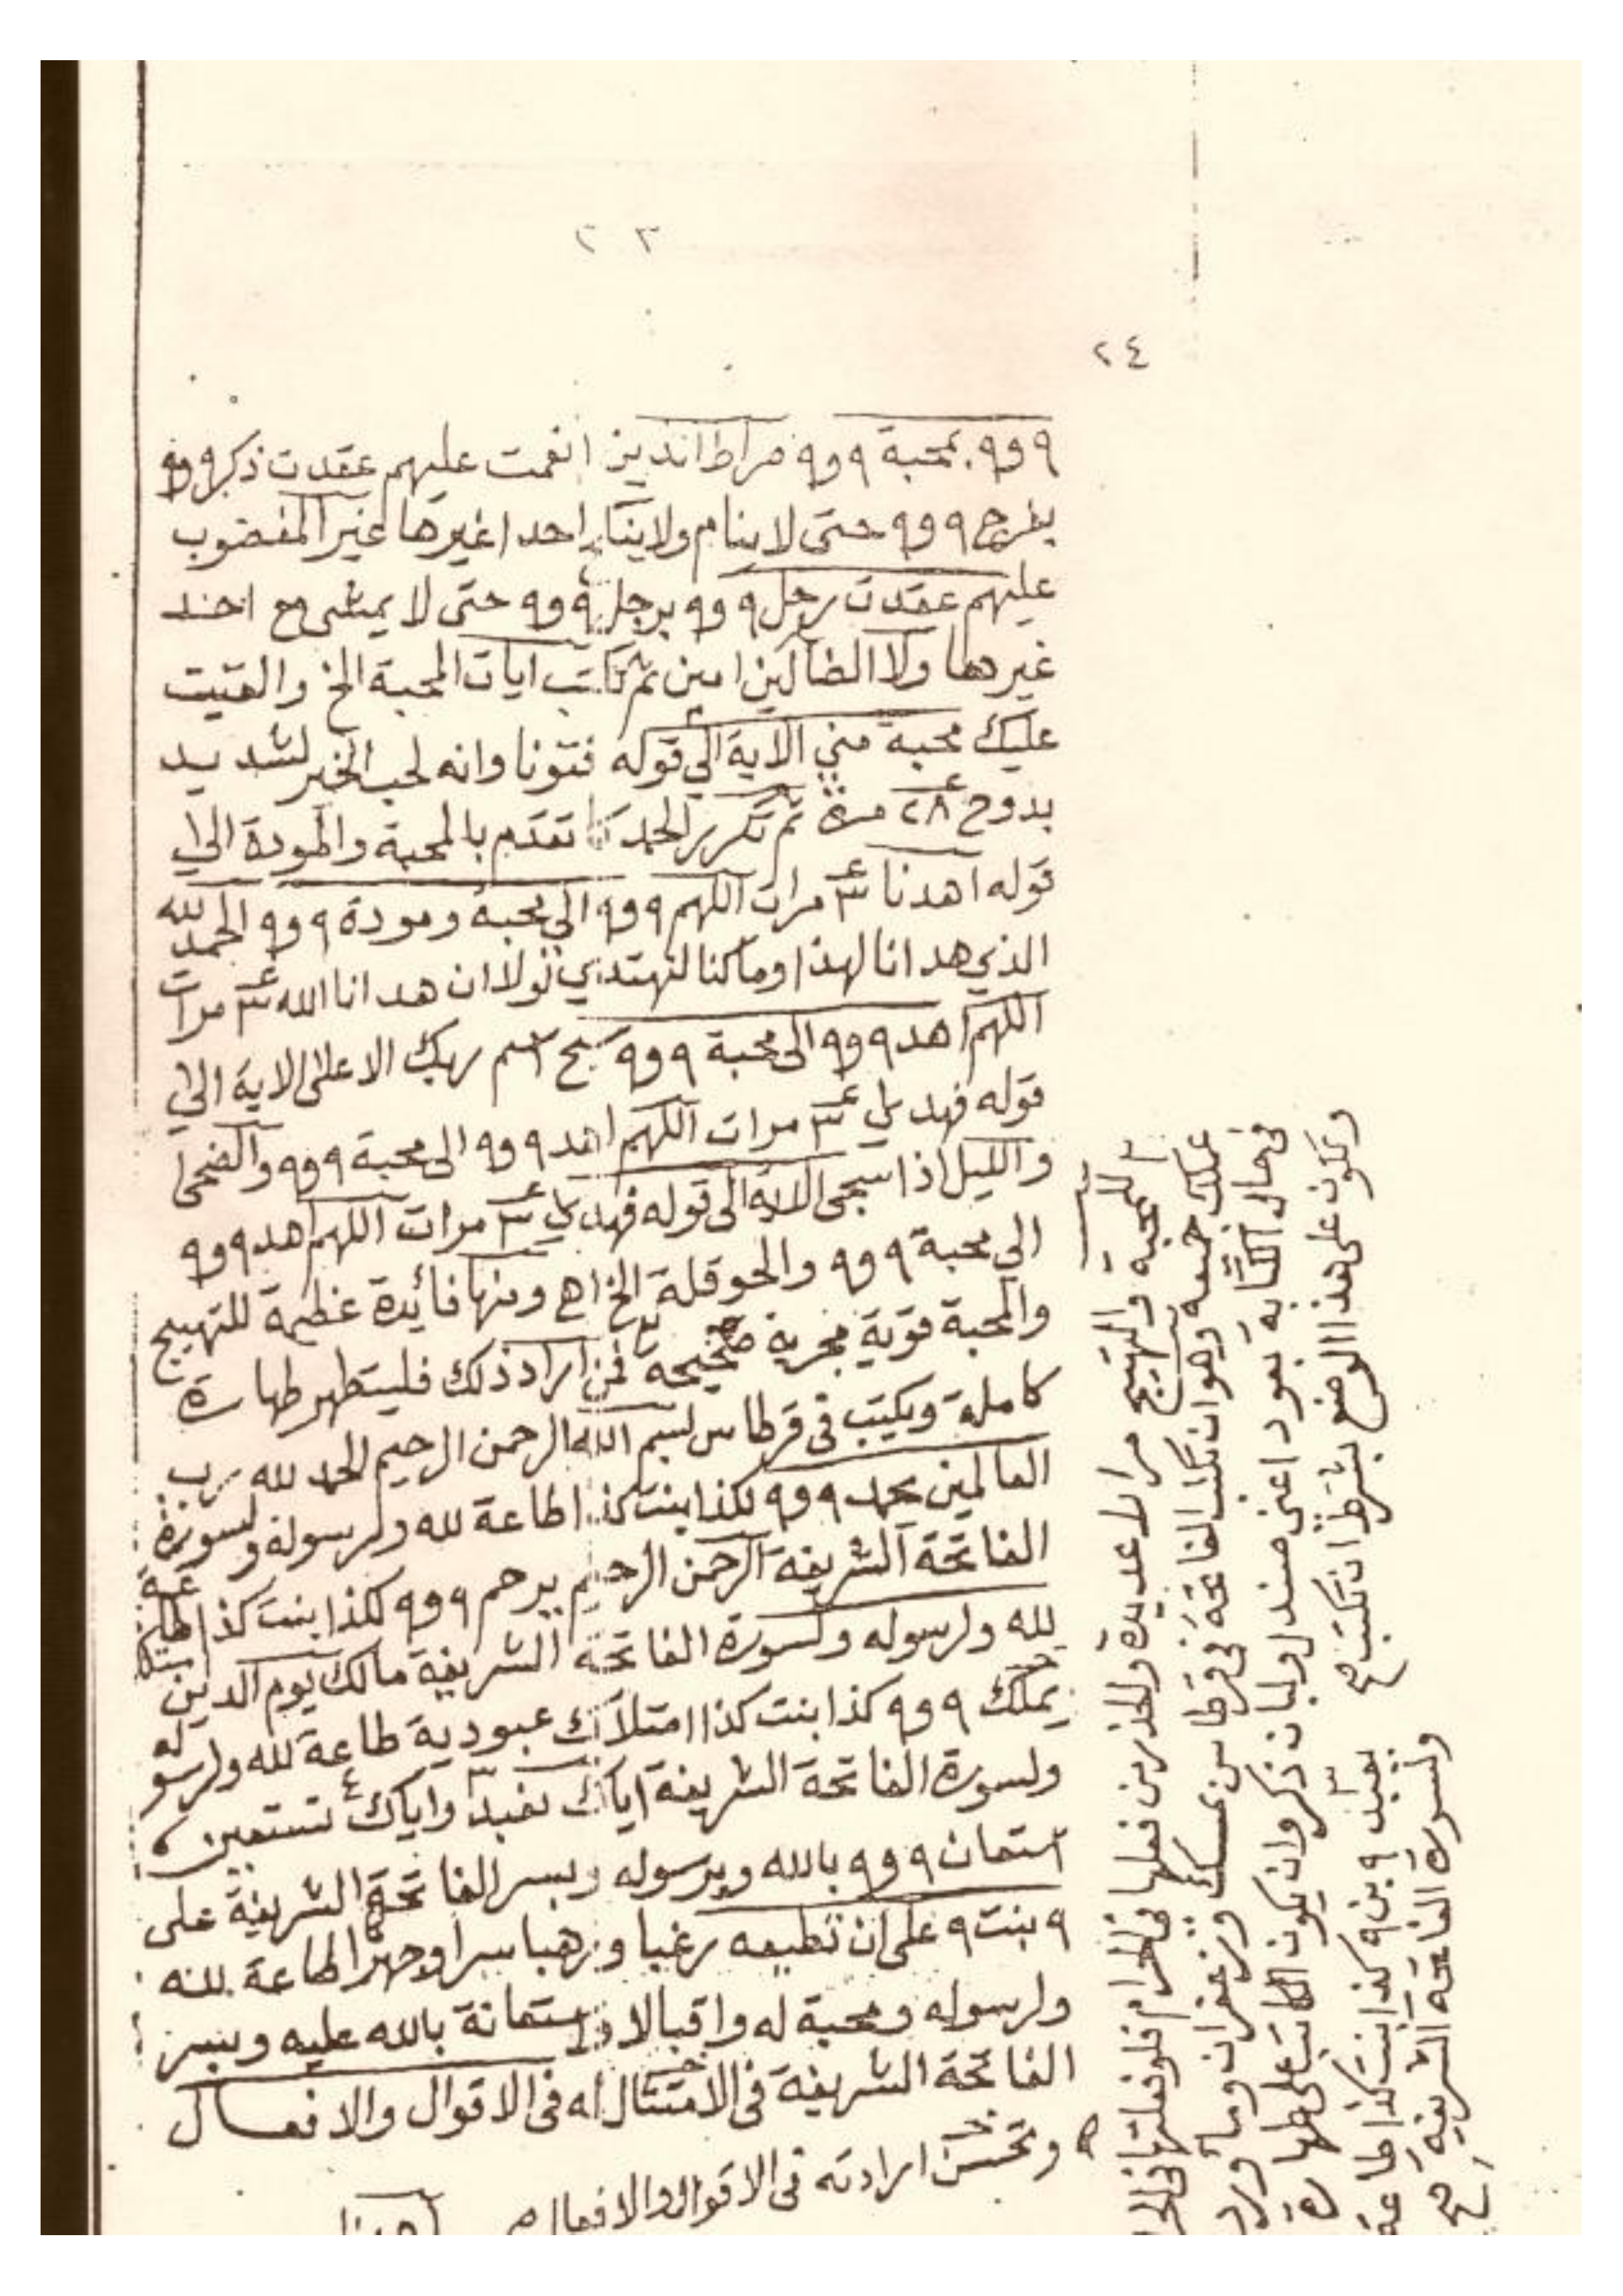 ٢٣
٢٤
٩ وو٩ بمحبة ٩ وو٩ صراط الذين انعمت عليهم عقدت ذكر ٩ وو٩
بفرج ٩ وو٩ حتى لا ينام ولا احدا غيرها غير المغضوب
عليهم عقدت رجل ٩ وو٩ برجل ٩ وو٩ حتى لا يمشى مع احد
غيرها ولا الضالين امين ثم تكتب ايات المحبة الخ والقيت
عليك محبة مني الاية الى قوله فتونا وانه لحب الخير لشديد
بدوح ٢٨ مرة ثم تكرر الحمد كما تقدم بالمحبة والمودة الى
قوله اهدنا ٣ مرات اللهم ٩ وو٩ الى محبة ومودة ٩ وو٩ الحمد لله
الذي هدانا لهذا وما كنا لنهتدي لولا ان هدانا الله ٣ مرات
اللهم اهد ٩ وو٩ الى محبة ٩ وو٩ سبح اسم ربك الاعلى الاية الى
قوله فهدى ٣ مرات اللهم اهد ٩ وو٩ الى محبة ٩ وو٩ والضحى
والليل اذا سجى الاية الى قوله فهدى ٣ مرات اللهم اهد ٩ وو٩
الى محبة ٩ وو٩ والحوقلة الخ اه ومنها فائدة عظيمة للتهييج
والمحبة قوية مجربة صحيحة فمن اراد ذلك فليتطهر طهارة
كاملة ويكتب في قرطاس بسم الله الرحمن الرحيم الحمد لله رب
العالمين بحمد ٩ وو٩ لكذا بنت كذا طاعة لله ولرسوله ولسورة
الفاتحة الشريفة الرحمن الرحيم يرحم ٩ وو٩ لكذا بنت كذا طاعة
لله ولرسوله ولسورة الفاتحة الشريفة مالك يوم الدين
يملك ٩ وو٩ كذا بنت كذا امتلاك عبودية طاعة لله ولرسوله
ولسورة الفاتحة الشريفة اياك نعبد واياك نستعين
استعان ٩ وو٩ بالله وبرسوله وبسر الفاتحة الشريفة على
٩ بنت ٩ على ان تطيعه رغبا ورهبا سرا وجهرا طاعة لله
ولرسوله ومحبة له واقبالا واستعانة بالله عليه وبسر
الفاتحة الشريفة في الامتثال له في الاقوال والافعال
وتحسن ارادته في الاقوال والافعال
اهدنا
للمحبة والتهييج مرارا عديدة والحذر من فعلها في الحرام فلو فعلتها في
عملك جميعه وهو ان تكتب الفاتحة في قرطاس بمسك وزعفران وماء ورد
في حال الكتابة بعود اعنى صندل ولبان ذكر وان يكون الكاتب على طهارة
وتكون على هذا الوضع بشرط ان تكتب صح
يعبد ٩ بن ٩ كذا بنت كذا طاعة
ولسورة الفاتحة الشريفة صح